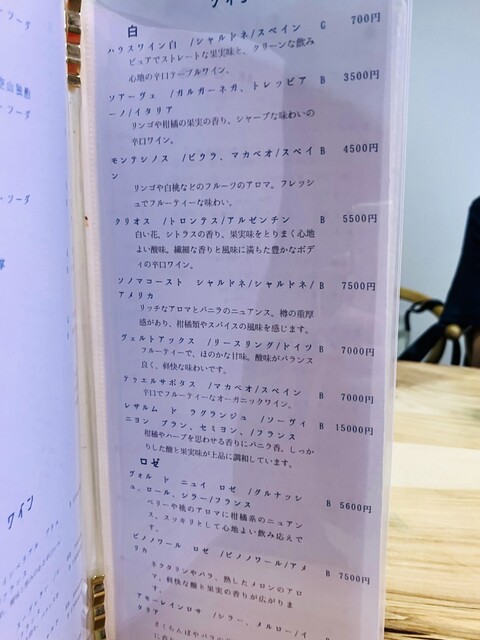 ワイン
白
ハウスワイン白 /シャルドネ/スペイン G 700円
ピュアでストレートな果実味と、クリーンな飲み
心地の辛口テーブルワイン。
ソアーヴェ /ガルガーネガ、トレッビア B 3500円
ーノ/イタリア
リンゴや柑橘の果実の香り、シャープな味わいの
辛口ワイン。
モンテシノス /ビウラ、マカベオ/スペイ B 4500円
ン
リンゴや白桃などのフルーツのアロマ。フレッシ
ュでフルーティーな味わい。
クリオス /トロンテス/アルゼンチン B 5500円
白い花、シトラスの香り。果実味をとりまく心地
よい酸味。繊細な香りと風味に満ちた豊かなボデ
ィの辛口ワイン。
ソノマコースト シャルドネ/シャルドネ/ B 7500円
アメリカ
リッチなアロマとバニラのニュアンス。樽の重厚
感があり、柑橘類やスパイスの風味を感じます。
ヴェルトアックス /リースリング/ドイツ B 7000円
フルーティーで、ほのかな甘味。酸味がバランス
良く、軽快な味わいです。
テラエルサボタス /マカベオ/スペイン B 7000円
辛口でフルーティーなオーガニックワイン。
レザルム ド ラグランジュ /ソーヴィ B 15000円
ニヨン ブラン、セミヨン、/フランス
柑橘やハーブを思わせる香りにバニラ香。しっか
りした酸と果実味が上品に調和しています。
ロゼ
ヴォル ド ニュイ ロゼ /グルナッシ B 5600円
ュ、ロール、シラー/フランス
ベリーや桃のアロマに柑橘系のニュアン
ス、スッキリとして心地よい飲み応えで
す。
ピノノワール ロゼ /ピノノワール/アメ B 7500円
リカ
ネクタリンやバラ、熟したメロンのアロ
マ。軽快な酸と果実の香りが広がりま
す。
アモーレインロサ /シラー、メルロー/イ B
タリア
さくらんぼや
ワイン